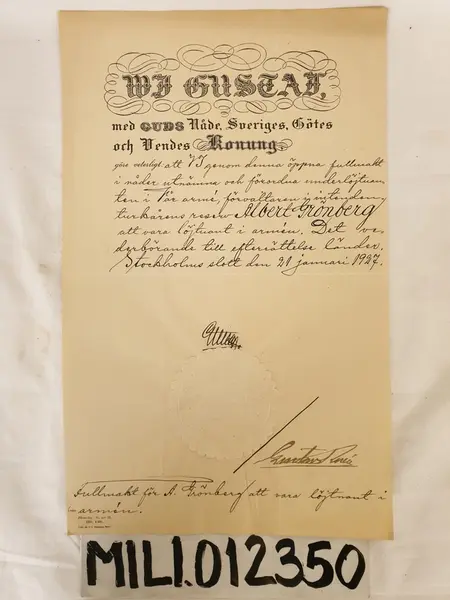 WJ GUSTAF,
med GUDS Nåde, Sveriges, Götes
och Vendes Konung,
göre veterligt att VJ genom denna öppna fullmakt
i nåder utnämna och förordna underlöjtnan-
ten i Vår armé, förvaltaren i intenden-
turkårens reserv Albert Grönberg
att vara löjtnant i armén. Det ve-
derbörande till efterrättelse länder.
Stockholms slott den 21 januari 1927.
Gustaf
Fullmakt för A. Grönberg att vara löjtnant i
armén.
MILI.012350